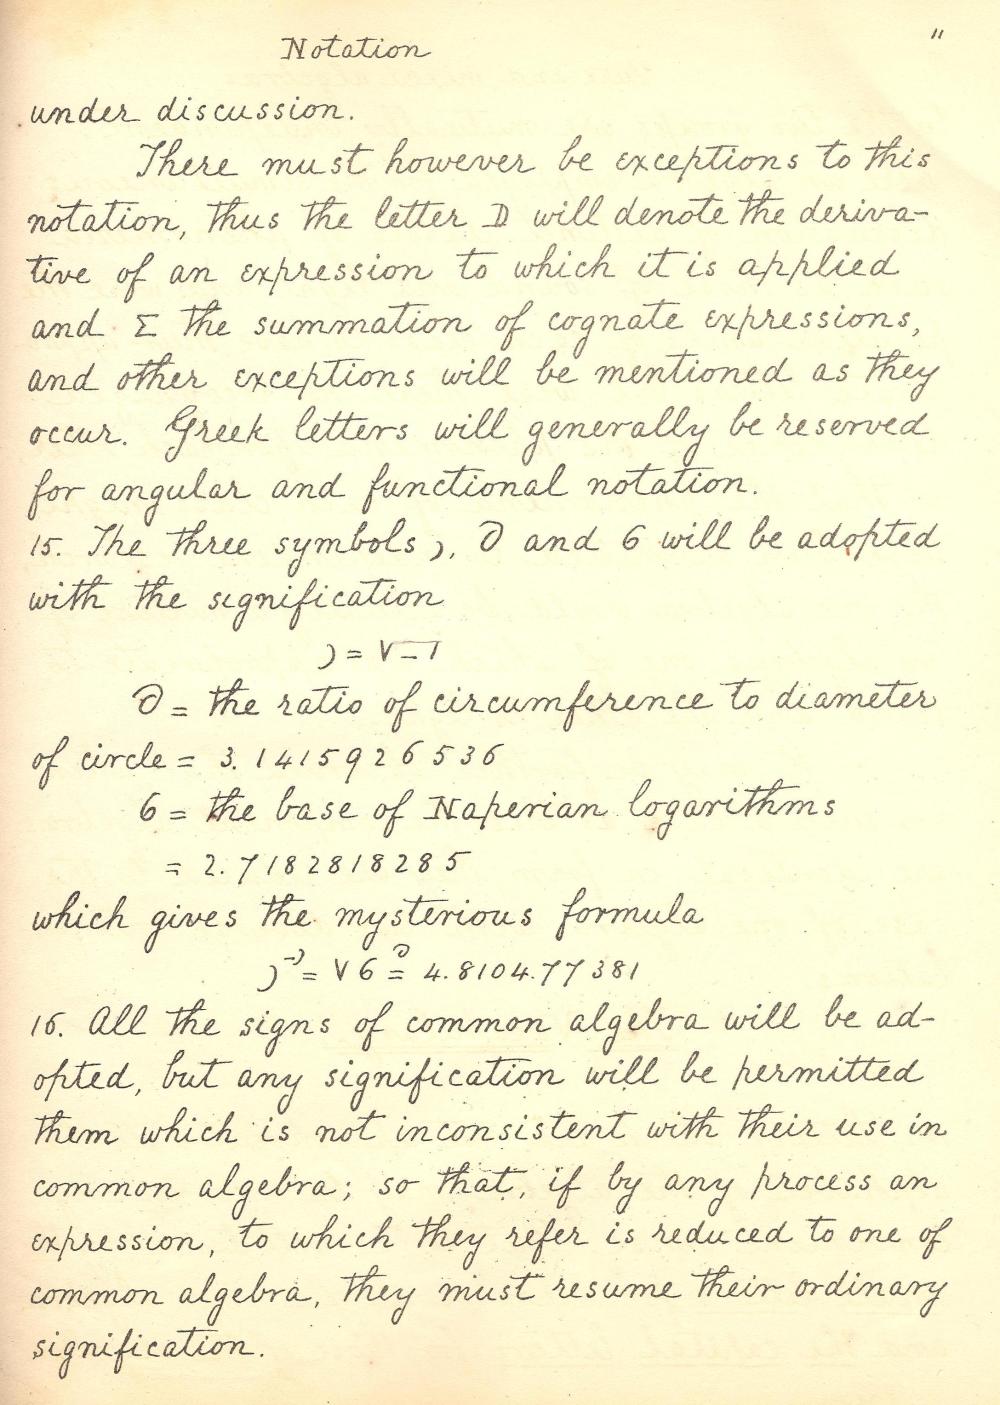 Notation 11
under discussion.
There must however be exceptions to this
notation, thus the letter D will denote the deriva-
tive of an expression to which it is applied
and Σ the summation of cognate expressions,
and other exceptions will be mentioned as they
occur. Greek letters will generally be reserved
for angular and functional notation.
15. The three symbols ), Ͽ and 6 will be adopted
with the signification
) = √-1
Ͽ = the ratio of circumference to diameter
of circle = 3.1415926536
6 = the base of Naperian logarithms
= 2.7182818285
which gives the mysterious formula
)⁻⁾ = √6^Ͽ = 4.810477381
16. All the signs of common algebra will be ad-
opted, but any signification will be permitted
them which is not inconsistent with their use in
common algebra; so that, if by any process an
expression, to which they refer is reduced to one of
common algebra, they must resume their ordinary
signification.